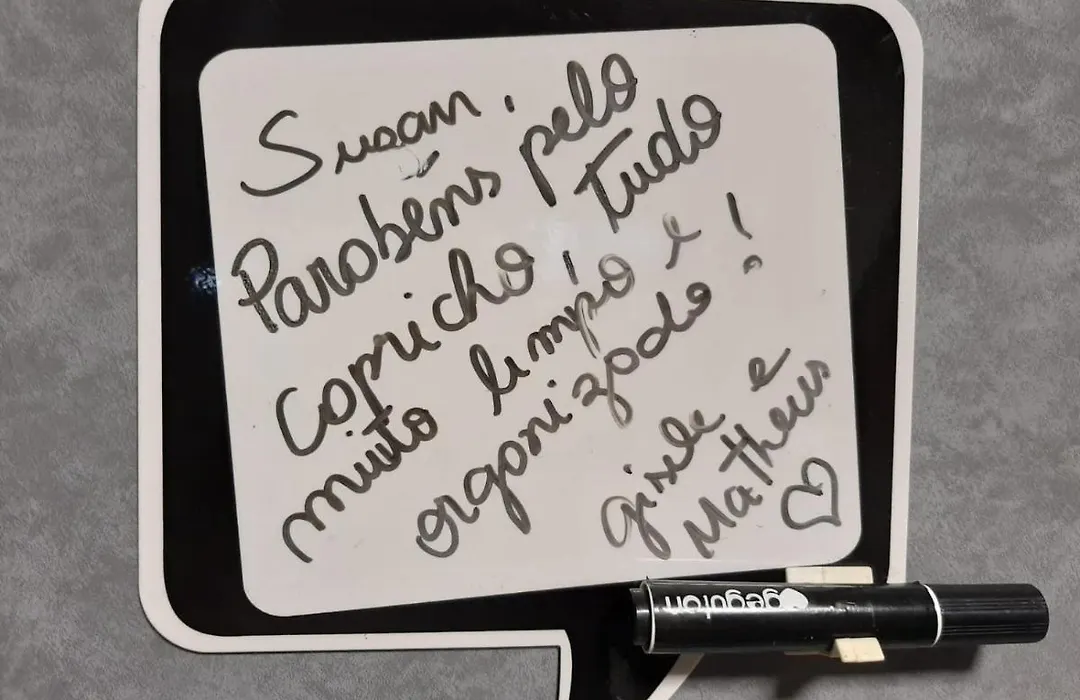 Susan,
Parabéns pelo
capricho, tudo
muito limpo e
organizado!
gisele e
Matheus
geguton